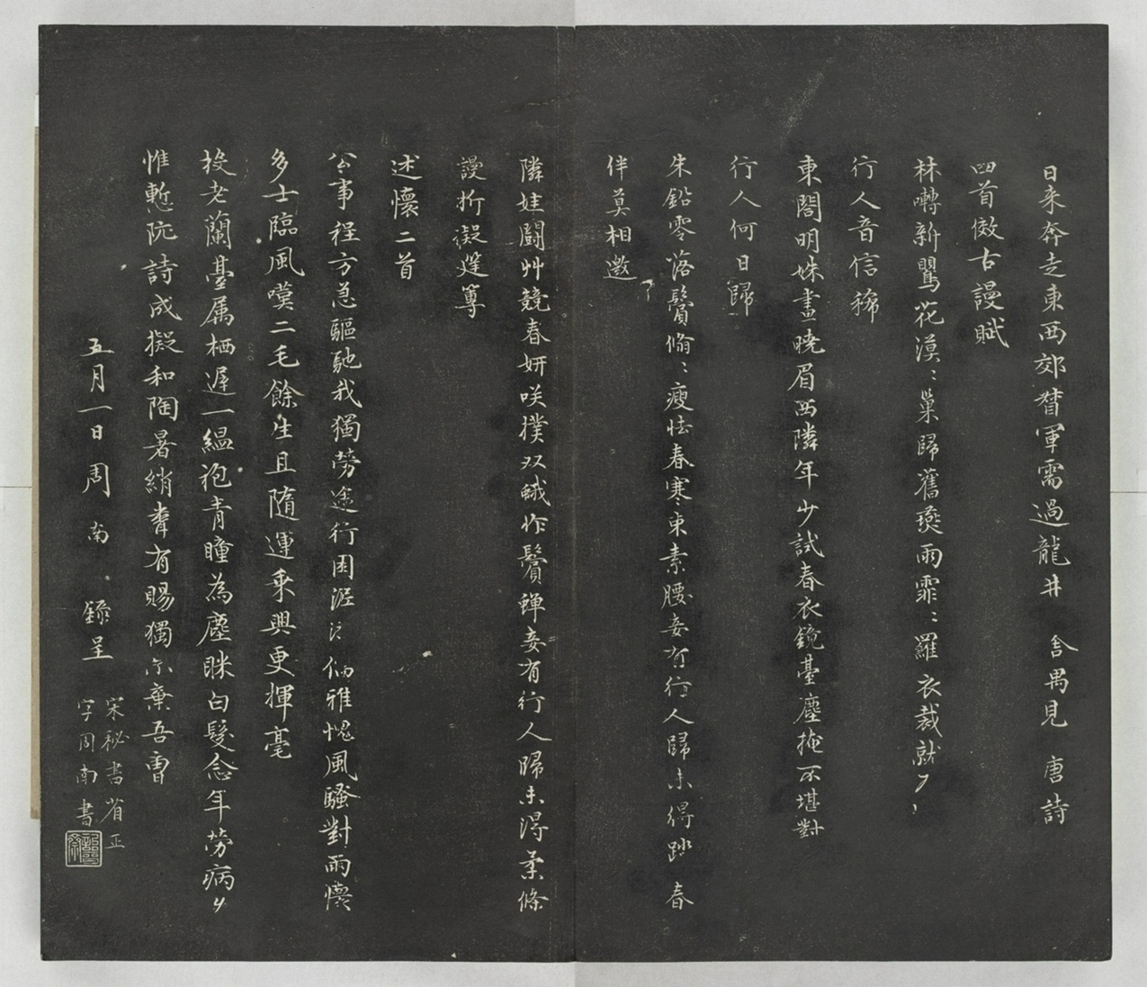 日来奔走東西郊督軍需過龍井 舎禺見 唐詩
四首傚古謾賦
林囀新鸎花漠〻巢歸舊燕雨霏〻羅衣裁就
行人音信稀
東閤明姝畫曉眉西隣年少試春衣鏡臺塵掩不堪對
行人何日歸
朱鉛零落鬢翛〻瘦怯春寒束素腰妾有行人歸未得踏春
伴莫相邀
隣娃鬪艸競春妍咲撲双蛾作鬢蟬妾有行人歸未得柔條
謾折擬筵篿
述懷二首
公事程方急驅馳我獨勞途行困泥 価雅愧風騷對雨懷
多士臨風嘆二毛餘生且隨運乘興更揮毫
投老蘭臺属栖遲一緼袍青瞳為塵眯白髮念年勞病
惟慙阮詩成擬和陶暑綃耷有賜獨尓棄吾曹
五月一日周南 錄呈
宋秘書省正
字周南書